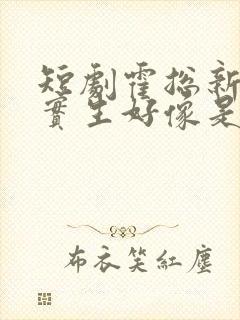 短劇霍總新
實生好像是
布衣笑紅塵